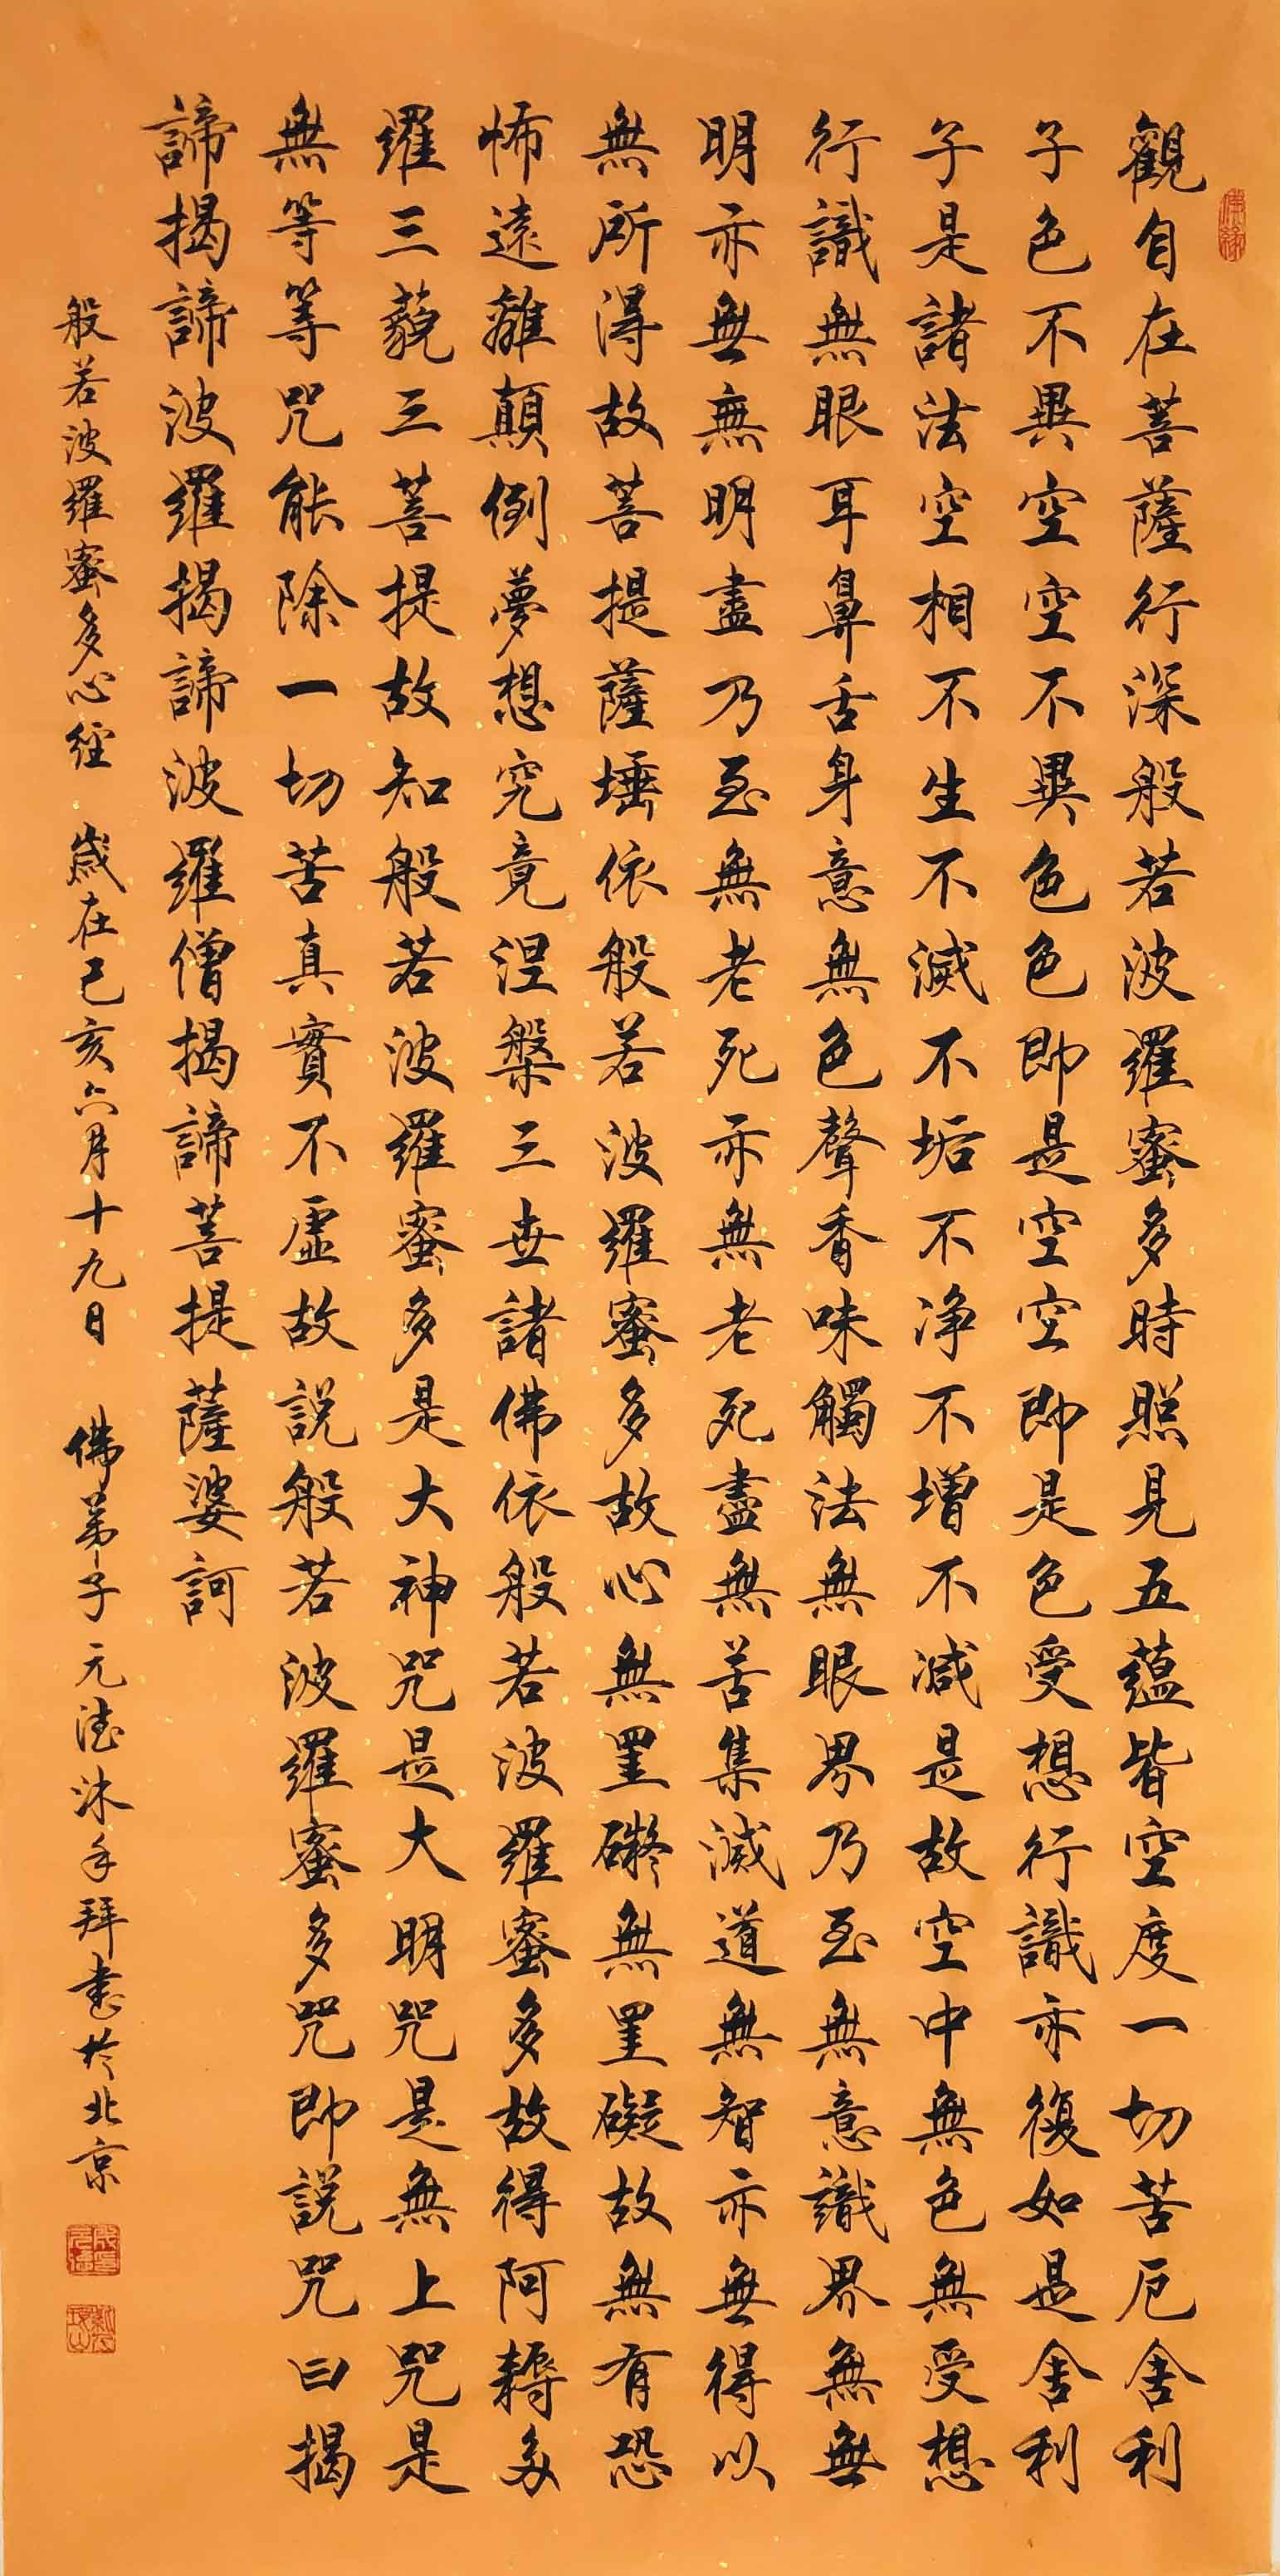 觀自在菩薩行深般若波羅蜜多時照見五蘊皆空度一切苦厄舍利
子色不異空空不異色色即是空空即是色受想行識亦復如是舍利
子是諸法空相不生不滅不垢不净不增不減是故空中無色無受想
行識無眼耳鼻舌身意無色聲香味觸法無眼界乃至無意識界無無
明亦無無明盡乃至無老死亦無老死盡無苦集滅道無智亦無得以
無所得故菩提薩埵依般若波羅蜜多故心無罣礙無罣礙故無有恐
怖遠離顛倒夢想究竟涅槃三世諸佛依般若波羅蜜多故得阿耨多
羅三藐三菩提故知般若波羅蜜多是大神咒是大明咒是無上咒是
無等等咒能除一切苦真實不虛故説般若波羅蜜多咒即説咒曰揭
諦揭諦波羅揭諦波羅僧揭諦菩提薩婆訶
般若波羅蜜多心經 歲在己亥六月十九日 佛弟子元德沐手拜書於北京